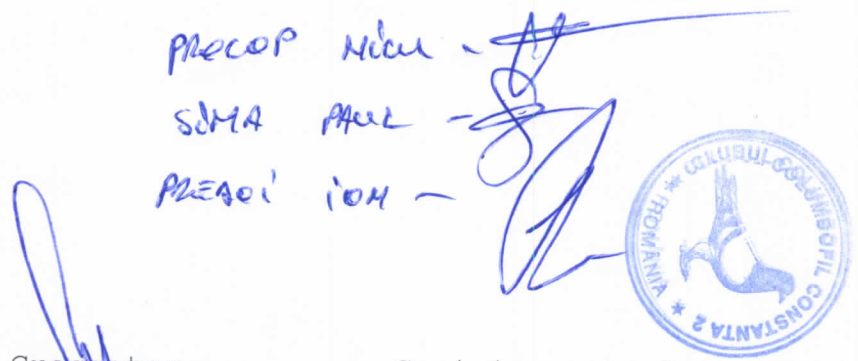 PROCOP NICU -
SIMA PAUL -
PREDOI ION -
CLUBUL COLUMBOFIL CONSTANTA 2 * ROMÂNIA *